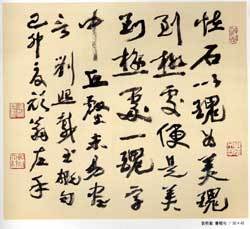 怪石以醜为美醜
到極處便是美
到極處一醜字
中丘壑未易盡
言劉熙載書概句
己卯夏翁左手